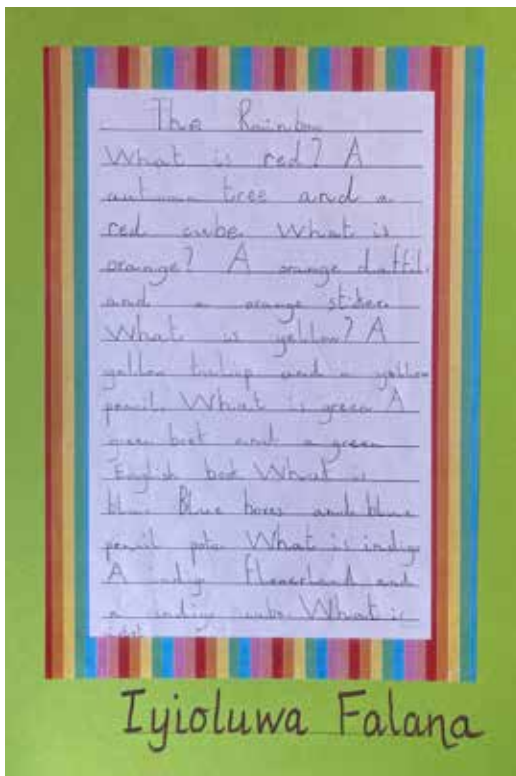 The Rainbow
What is red? A
autumn tree and a
red cube. What is
orange? A orange daffil.
and a orange sticker
What is yellow? A
yellow tulip and a yellow
pencil. What is green A
green boot and a green
English book What is
blue Blue boxes and blue
pencil pots What is indigo
A indigo and
a indigo cube. What is
Iyioluwa Falana